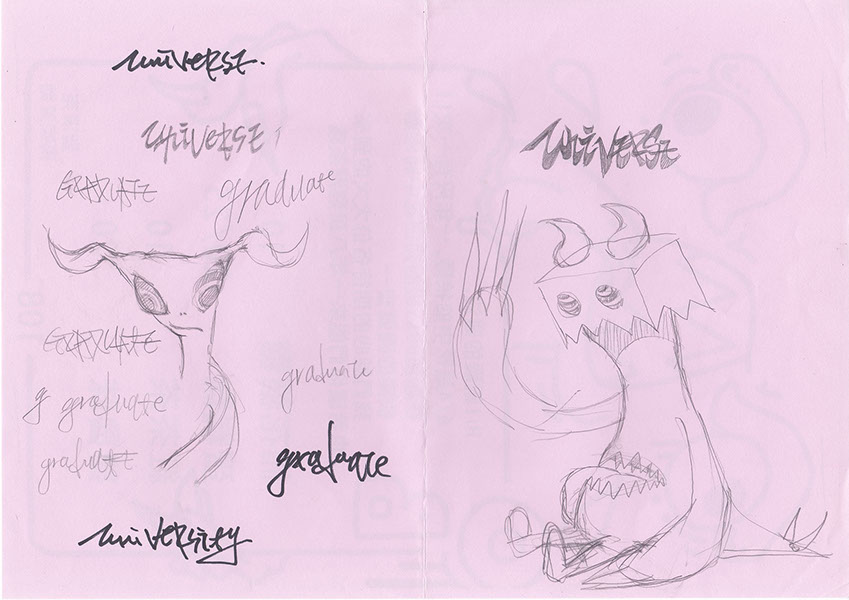 universe.
universe
GRADUATE
graduate
GRADUATE
graduate
g graduate
graduate
graduate
university
universe